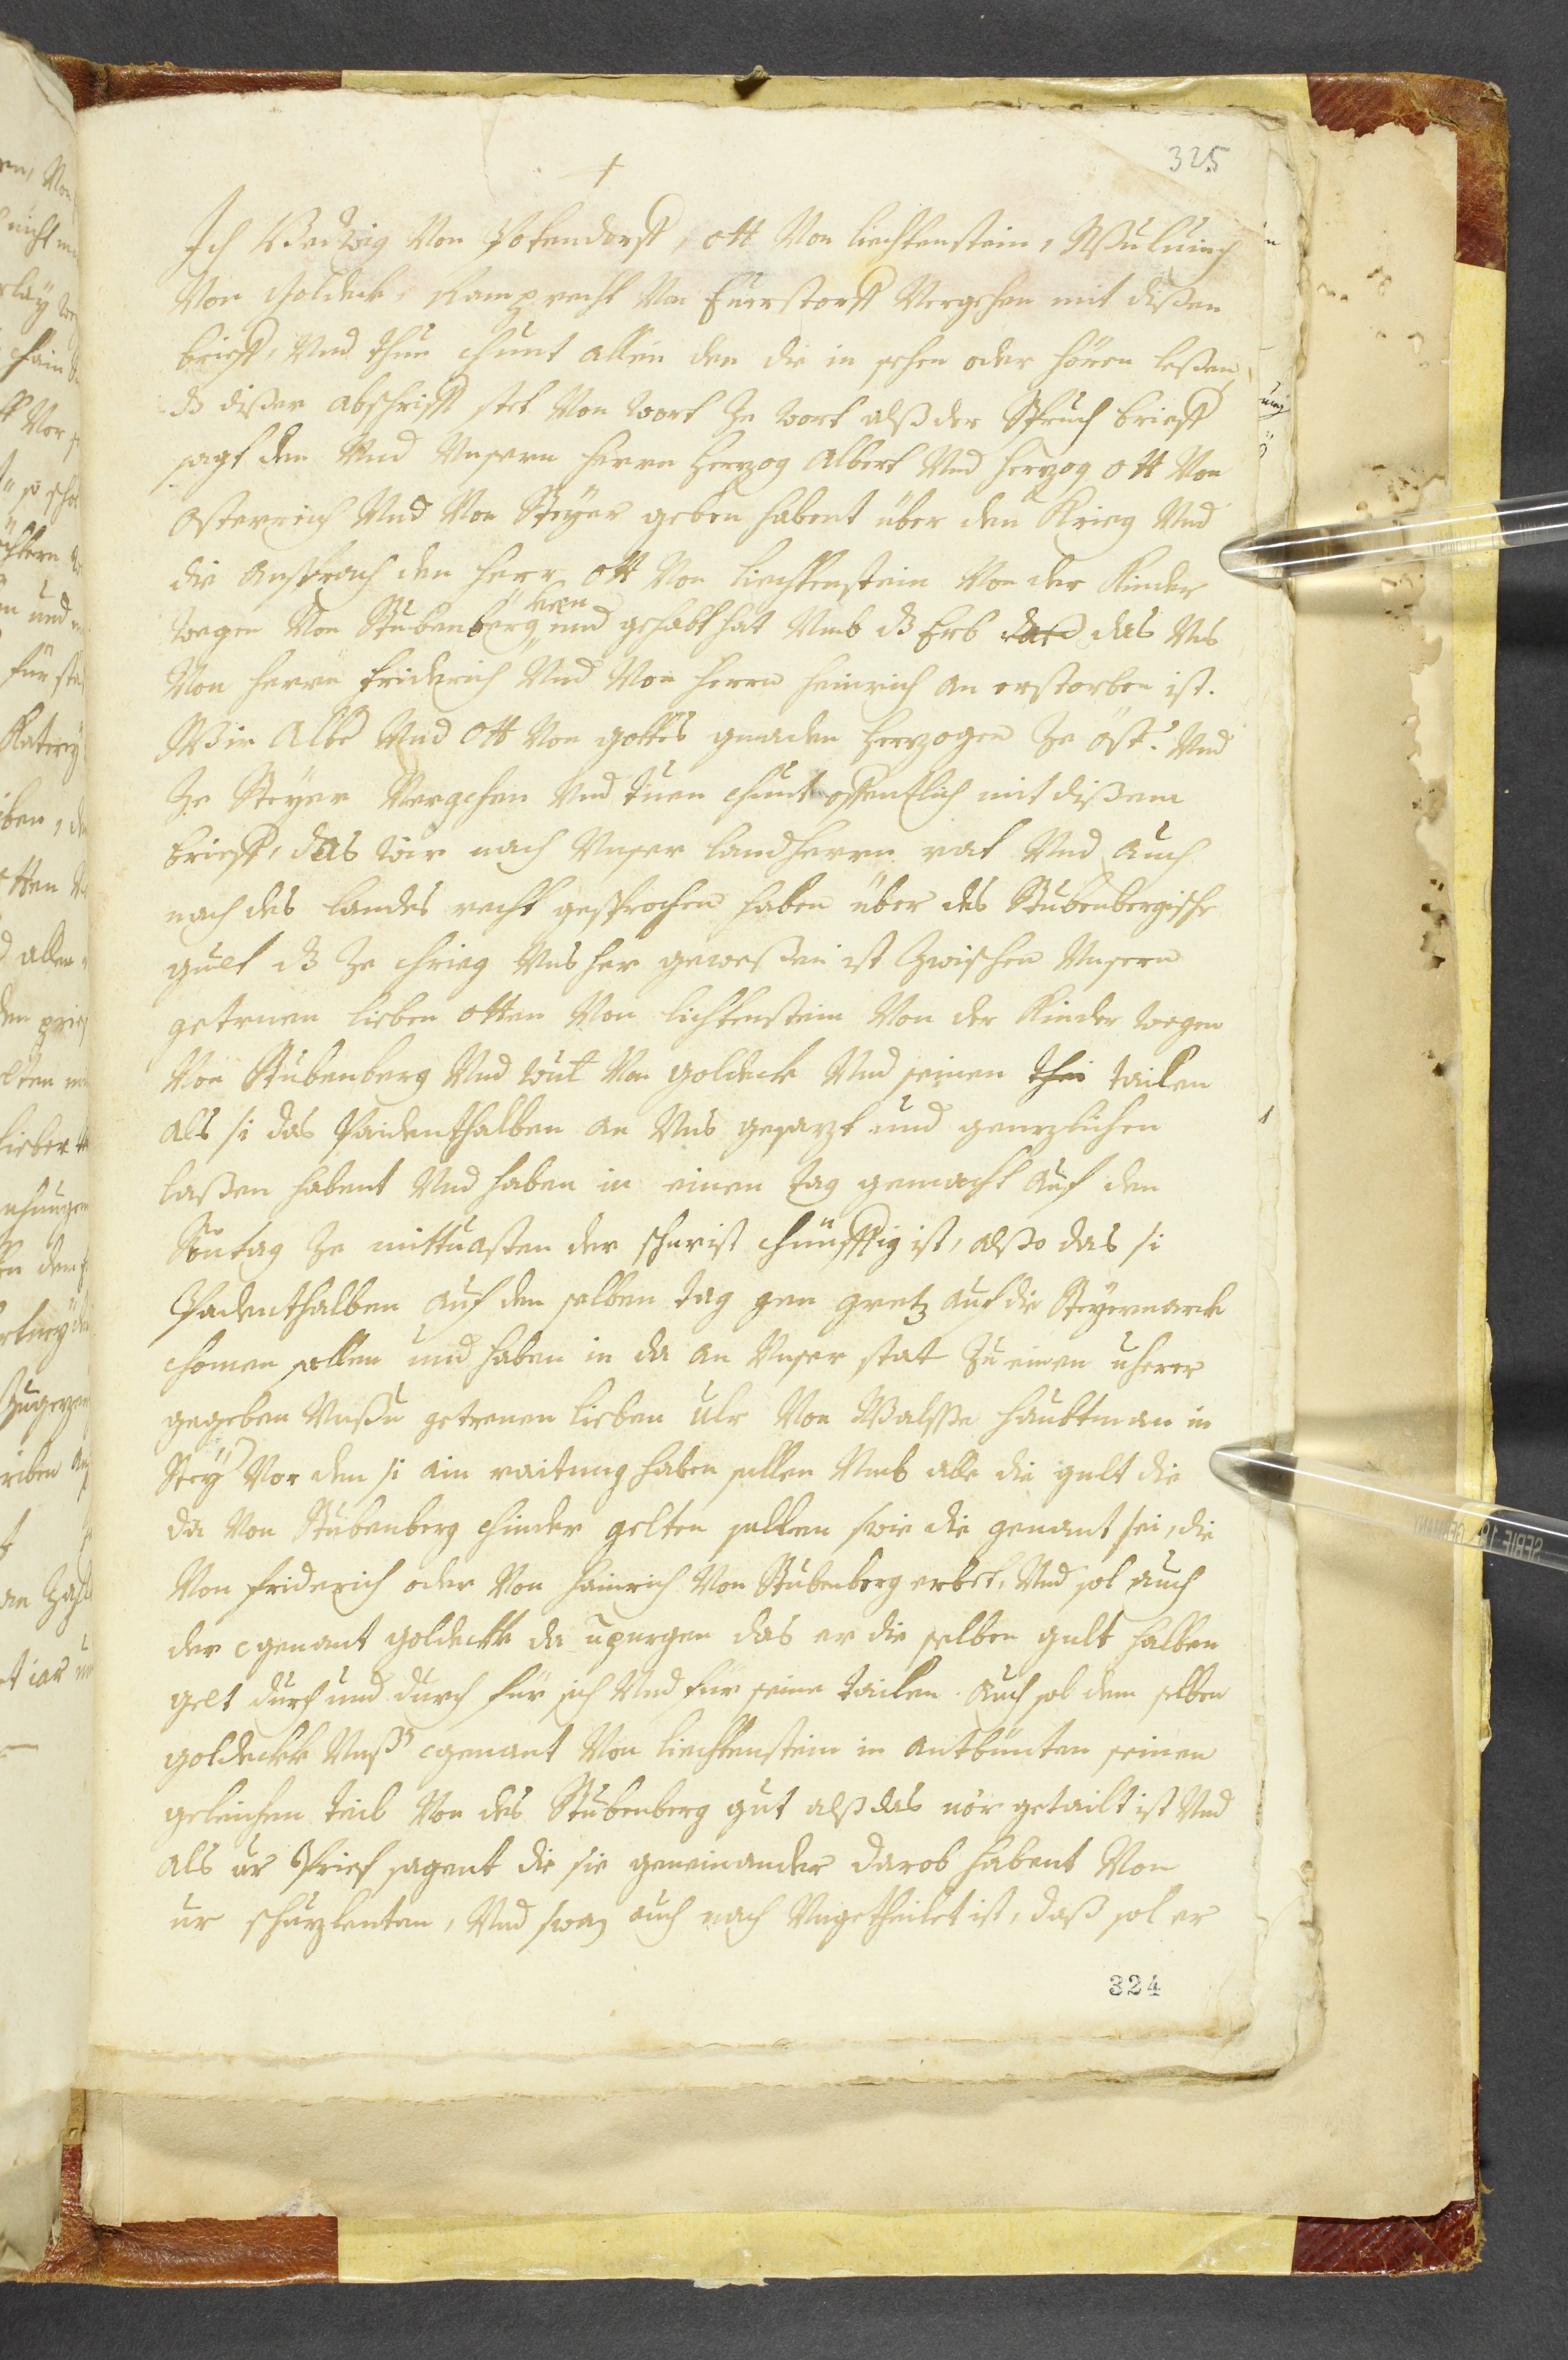 325
Ich Von Potendorff, ott Von liechtenstein, Wuluinch
Von Goldek, Von Eürstorff Vergehen mit dißen
brieff, Vnd thun chunt allen den die in sehen oder hören leßen,
dz dißer abschrifft stet Von wort ze wort alß der Spruch brieff
sagt den Vnd Vnseren herrn herzog Albert Vnd herzog ott Von
Osterreich Vnd Von Steyer geben habent über den Krieg Vnd
die ansprach den herr ott Von liechtenstein Von der Kinder
wegen Von Stubenberg und gehabt hat Vmb dz Erb das Vns
Von herrn friderich Vnd Von herrn heinrich an erstorben ist.
Wir Albr Vnd Ott Von gottes gnaden herzogen Ze öst: Vnd
Ze Steyer Vergehen Vnd tuen chunt offentlich mit dißem
brieff, das wir nach Vnser landherrn rat Vnd auch
nach des landes recht gesprochen haben über des Stubenbergische
guet dz Ze chrieg Vnsher geweßen ist Zwischen Vnsern
getruen lieben otten Von lichtenstein Von der Kinder wegen
Von Stubenberg Vnd wul Von goldeck Vnd seinen tailen
als si das Paidenthalben an Vns gesazt und genzlichen
laßen habent Vnd haben in einen tag gemacht auf den
Suntag Ze mittuasten der schierist chünfftig ist, alßo das si
Padenthalben auf den selben tag gen gretz auf die Steyermarck
chomen sollen und haben in da an Vnser stat Zu einen
gegeben Vnßn getreuen lieben ulr Von Walsse haubtman in
Stey Vor den si ain raitung haben sullen Vmb alle die gult die
da Von Stubenberg chinder gelten sullen swie die genant sei, die
Von friderich oder Von hainrich Von Stubenberg erbet, Vnd sol auch
der egenant goldekk da das er die selben gult halben
gelt durch und durch für sich Vnd für seine tailen. Auch sol dem selben
goldekk Vnßr egenant Von liechtenstein in antbürten seinen
geleichen teil Von des Stubenberg gut alß das uor getailt ist Vnd
als ir Prief sagent die sie geneinander darob habent Von
ir schuzleuten, Vnd swaz auch noch Vngetheilet ist, daß sol er
324